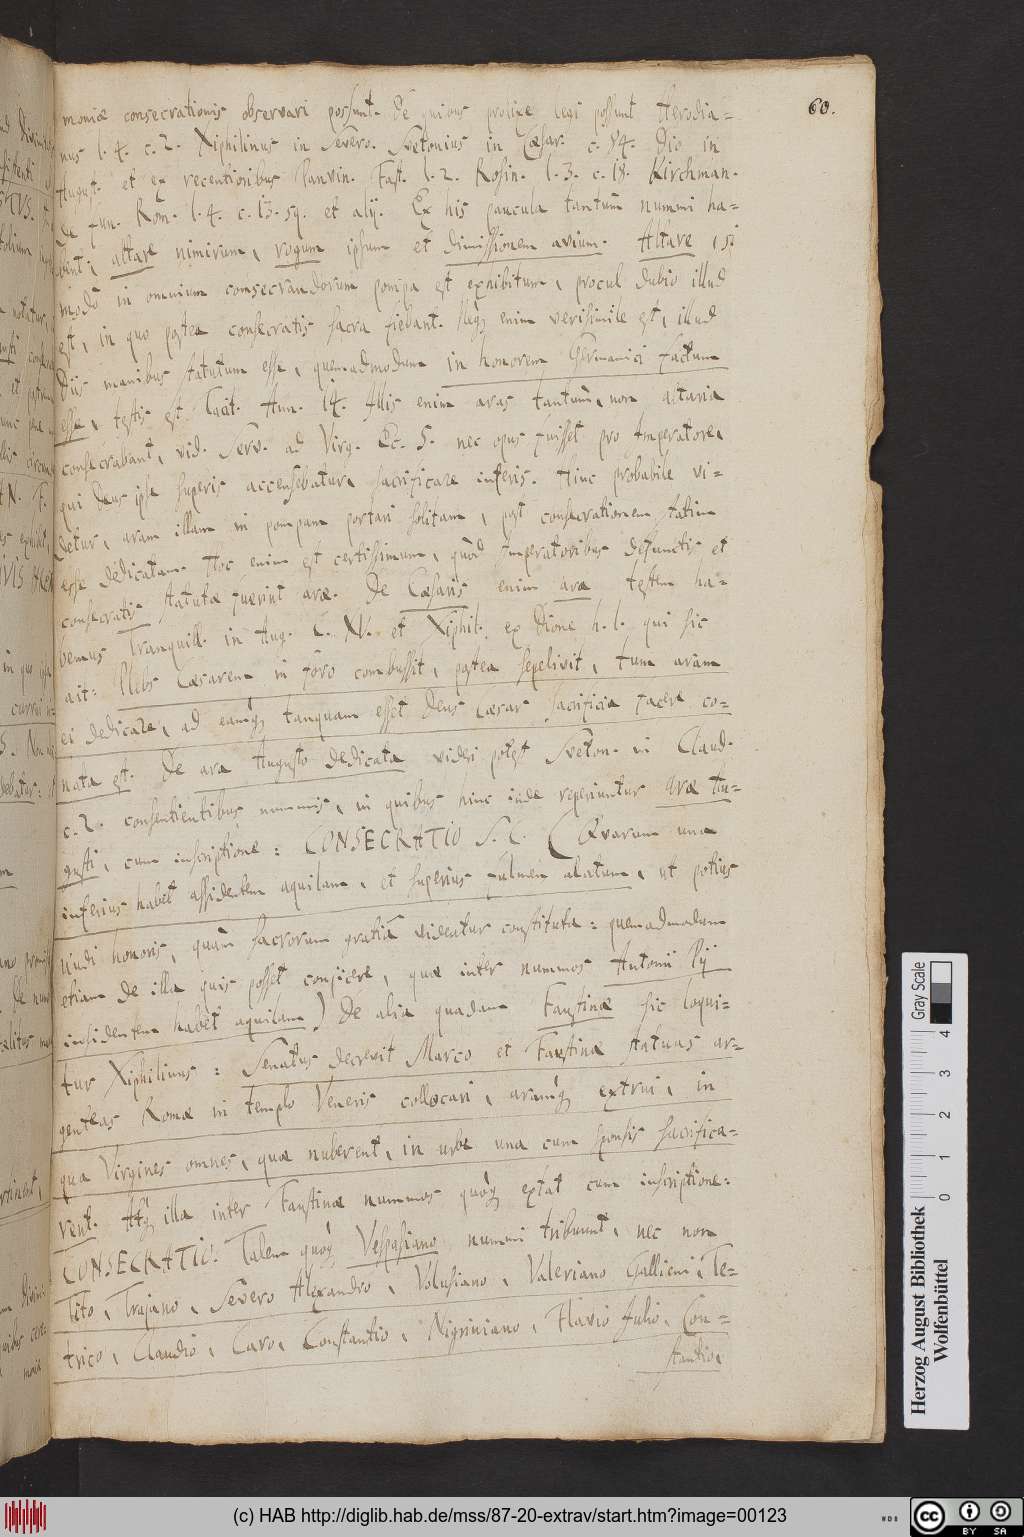 60.
moniæ consecrationis observari possunt. De quibus prolixe legi possunt Herodia=
nus l. 4. c. 2. Xiphilinus in Severo. Svetonius in Cæsar. c. 84. Dio in
August. et ex recentioribus Panvin. Fast. l. 2. Rosin. l. 3. c. 18. Kirchman.
de fun. Rom. l. 4. c. 13. 59. et alij. Ex his paucula tantum nummi ha=
bent; altare nimirum, rogum ipsum et dimissionem avium. Altare (si
modo in omnium consecrandorum pompa est exhibitum, procul dubio illud
est, in quo postea consecratis sacra fiebant. Neq enim verisimile est, illud
Diis manibus statutum esse, quemadmodum in honorem Germanici factum
esse, testis est Tacit. Ann. 14. Illis enim aras tantum, non altaria
consecrabant, vid. Serv. ad Virg. Ec. 5. nec opus fuisset pro Imperatore,
qui Deus ipse superis accensebatur, sacrificare inferis. Hinc probabile vi=
detur, aram illam in pompam portari solitam, post consecrationem statim
esse dedicatam. Hoc enim est certissimum, quòd Imperatoribus defunctis et
consecratis statutæ fuerint aræ. De Cæsaris enim ara testem ha=
bemus Tranquill. in Aug. c. XV. et Xiphil. ex Dione h. l. qui sic
ait: Plebs Cæsarem in foro combussit, postea sepelivit, tum aram
ei dedicare, ad eamq tanquam esset Deus Cæsar sacrificia facere co=
nata est. De ara Augusto dedicata videri potest Sveton. in Claud.
c. 2. consentientibus nummis, in quibus hinc inde reperiuntur aræ Au=
gusti, cum inscriptione: CONSECRATIO S. C. (Qvarum una
inferius habet assidentem aquilam, et superius fulmen alatum, ut potius
nudi honoris, quàm sacrorum gratiâ videatur constituta: quemadmodum
etiam de illa quis posset conjicere, quæ inter nummos Antonii Pij
insidentem habet aquilam) De alia quadam Faustinæ sic loqui=
tur Xiphilinus: Senatus decrevit Marco et Faustinæ statuas ar=
genteas Romæ in templo Veneris collocari, aramq extrui, in
qua Virgines omnes, quæ nuberent, in urbe una cum sponsis sacrifica=
rent. Atq illa inter Faustinæ nummos quoq extat cum inscriptione:
CONSECRATIO. Talem quoq Vespasiano nummi tribuunt, nec non
Tito, Trajano, Severo Alexandro, Volusiano, Valeriano Gallieni, Te=
trico, Claudio, Caro, Constantio, Nigriniano, Flavio Julio, Con=
stantio,
Herzog August Bibliothek
Wolfenbüttel
Gray Scale
0 1 2 3 4
(c) HAB http://diglib.hab.de/mss/87-20-extrav/start.htm?image=00123
cc BY SA